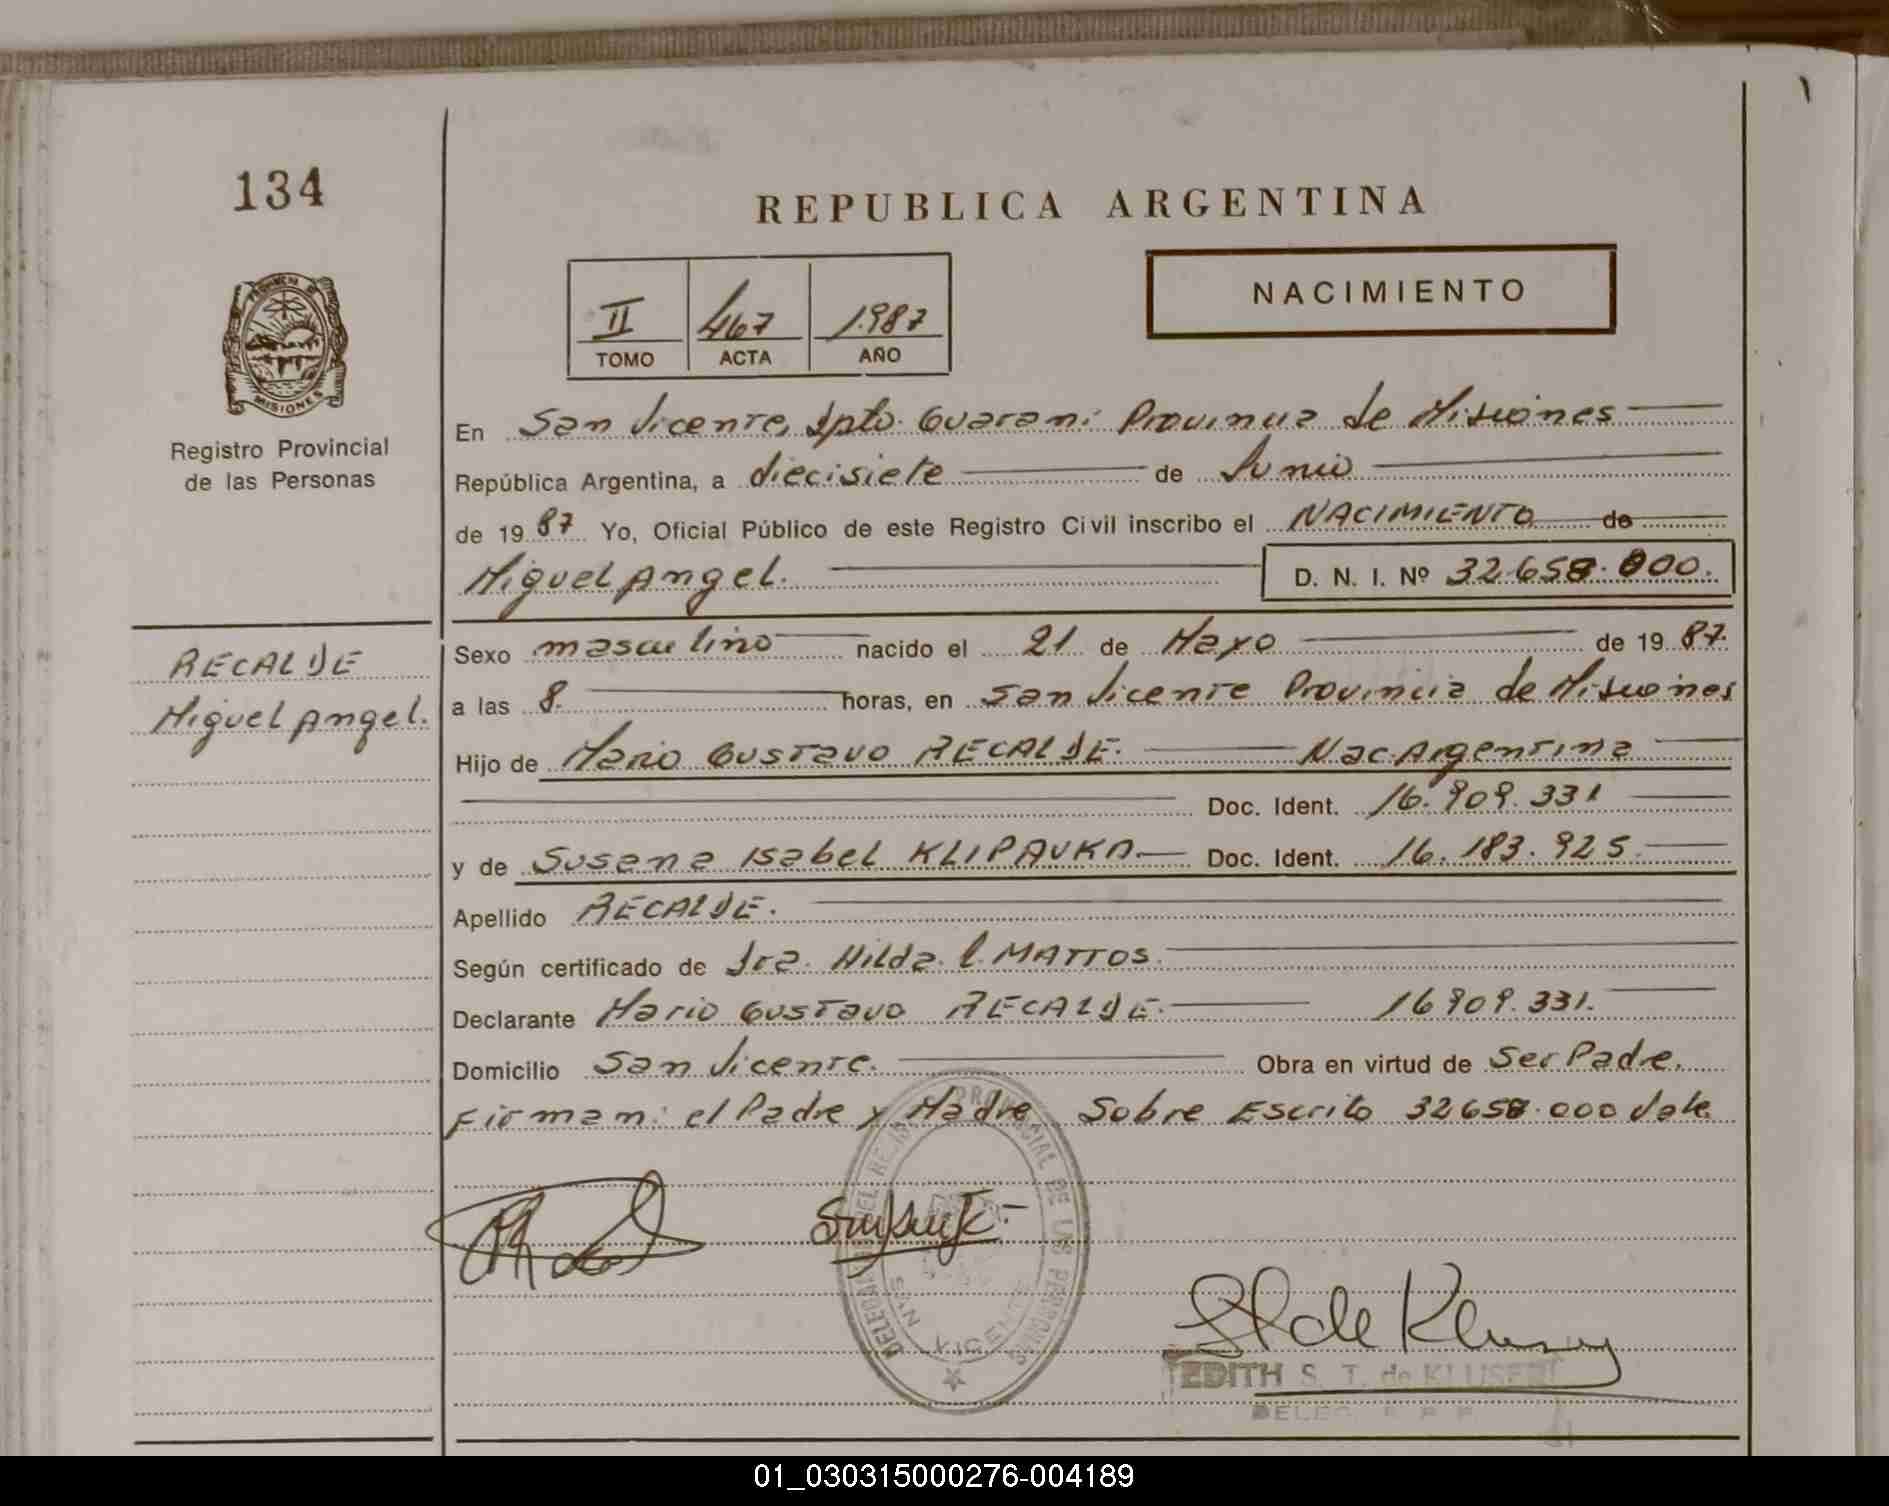 134
REPUBLICA ARGENTINA
NACIMIENTO
II 467 1.987
TOMO ACTA AÑO
PROVINCIA DE
MISIONES
Registro Provincial
de las Personas
En San Vicente, Dpto. Guarani Provincia de Misiones
República Argentina, a diecisiete de Junio
de 19 87 Yo, Oficial Público de este Registro Civil inscribo el NACIMIENTO de
Miguel Angel. D. N. I. Nº 32.658.000.
RECALDE
Miguel Angel.
Sexo masculino nacido el 21 de Mayo de 19 87.
a las 8. horas, en San Vicente Provincia de Misiones
Hijo de Mario Gustavo RECALDE. Nac. Argentina
Doc. Ident. 16.909.331
y de Susana Isabel KLIPAUKA Doc. Ident. 16.183.925.
Apellido RECALDE.
Según certificado de Dra. Hilda. MATTOS.
Declarante Mario Gustavo RECALDE. 16909.331.
Domicilio San Vicente. Obra en virtud de Ser Padre.
Firman: el Padre y Madre Sobre Escrito 32658.000 Vale
DEL REGISTRO PROVINCIAL DE LAS PERSONAS
SAN VICENTE
EDITH S. T. de KLUSENER
01_030315000276-004189